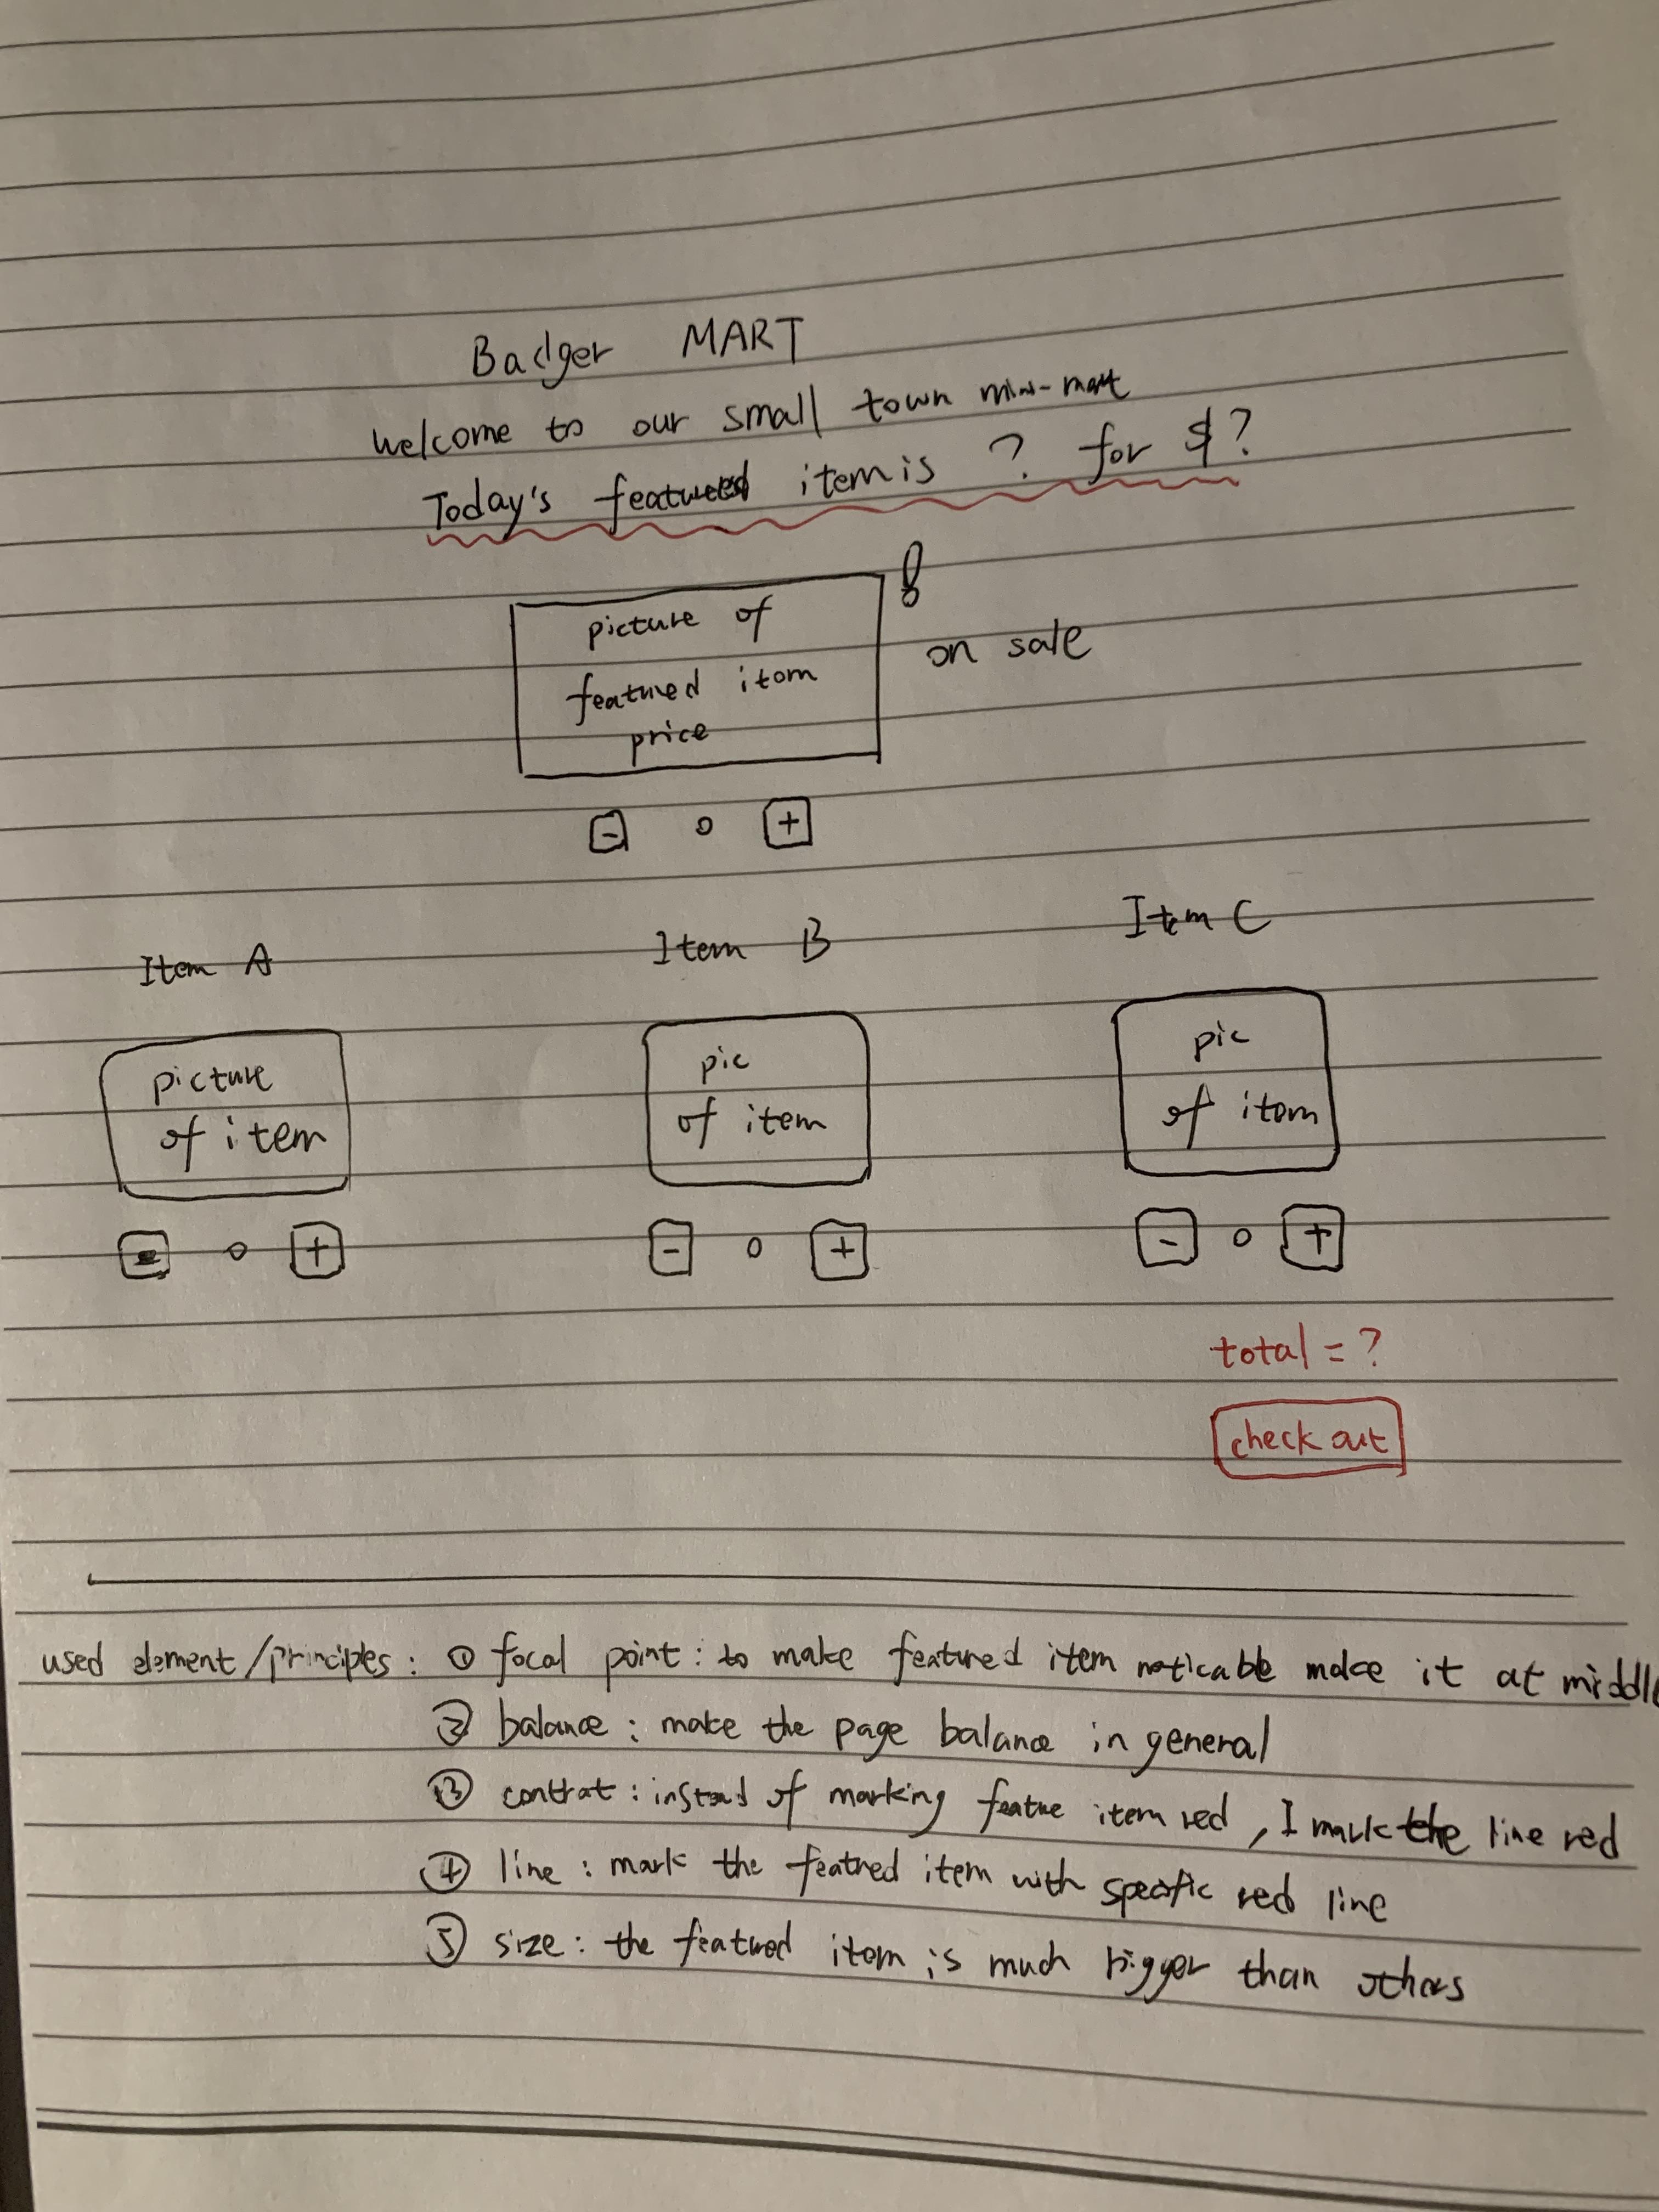 Badger MART
Welcome to our small town mini-mart
Today's featured item is ? for $?
!
picture of
featured item
price
on sale
- 0 +
Item A Item B Item C
picture
of item
pic
of item
pic
of item
- 0 + - 0 + - 0 +
total = ?
check out
used element/principles: ① focal point: to make featured item noticable make it at middle
② balance: make the page balance in general
③ contrat: instead of marking featue item red, I mark the line red
④ line: mark the featred item with specific red line
⑤ size: the featured item is much bigger than others